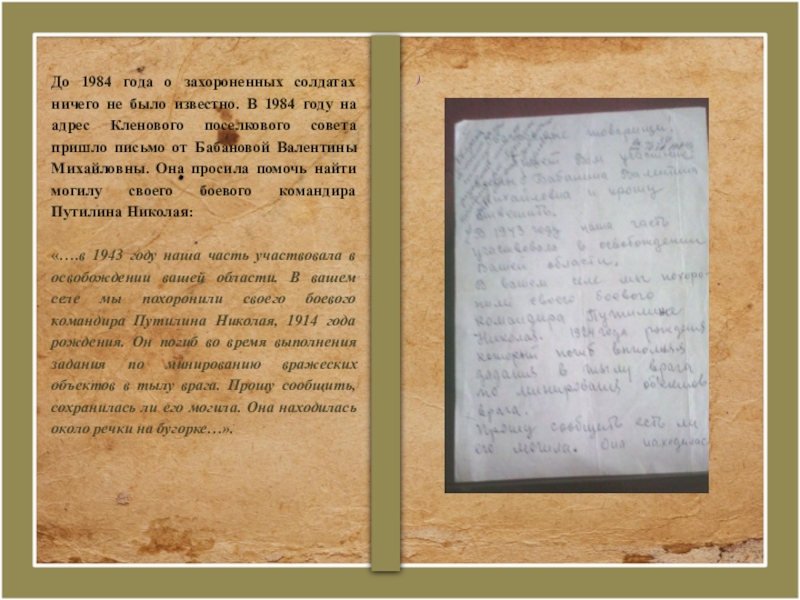 До 1984 года о захороненных солдатах
ничего не было известно. В 1984 году на
адрес Кленового поселкового совета
пришло письмо от Бабановой Валентины
Михайловны. Она просила помочь найти
могилу своего боевого командира
Путилина Николая:
«….в 1943 году наша часть участвовала в
освобождении вашей области. В вашем
селе мы похоронили своего боевого
командира Путилина Николая, 1914 года
рождения. Он погиб во время выполнения
задания по минированию вражеских
объектов в тылу врага. Прошу сообщить,
сохранилась ли его могила. Она находилась
около речки на бугорке…».
)
товарищи.
Пишет Вам
Валентина
Михайловна и прошу
В 1943 году наша часть
участвовала в освобождении
Вашей области.
В вашем селе мы похоро-
нили своего боевого
командира Путилина
Николая. 1924 года рождения
который погиб выполняя
задания в тылу врага
по минирования объектов
врага.
Прошу сообщить есть ли
его могила. Она находилась